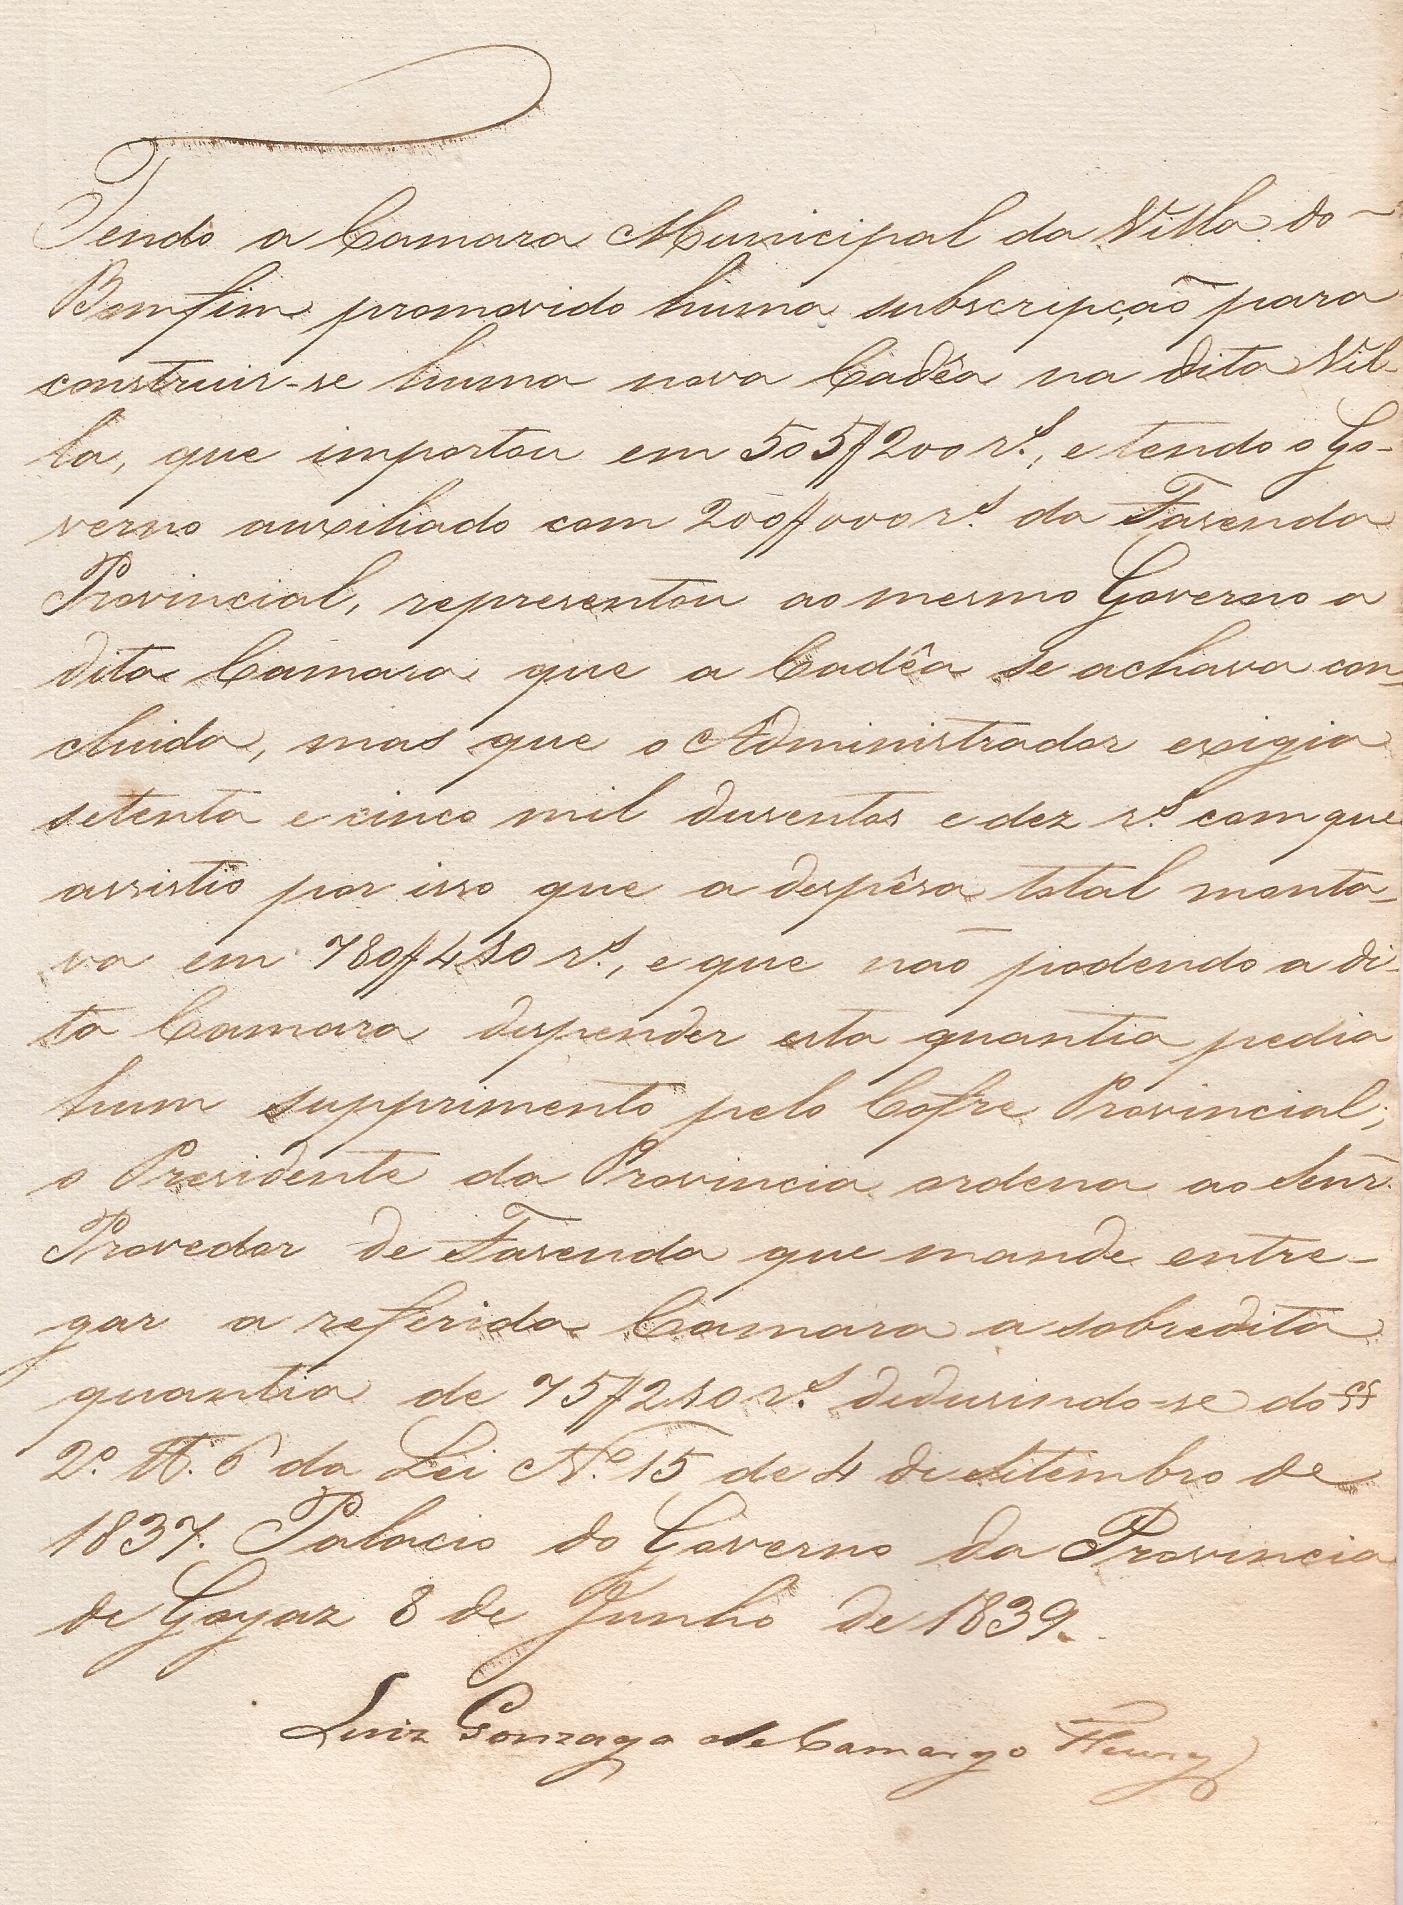 Tendo a Camara Municipal da Villa do
Bomfim promovido huma subscripção para
construir-se huma nova Cadêa na dita Vil-
la, que importou em 505$200 rs., e tendo o Go-
verno auxiliado com 200$000 rs. da Fasenda
Provincial, representou ao mesmo Governo a
dita Camara que a Cadêa se achava con-
cluida, mas que o Administrador exigia
setenta e cinco mil dusentos e dez rs. com que
assistio por isso que a despêsa total monta-
va em 780$410 rs., e que não podendo a di-
ta Camara despender esta quantia pedia
hum supprimento pelo Cofre Provincial;
o Presidente da Provincia ordena ao Senr.
Provedor de Fasenda que mande entre-
gar a referida Camara a sobredita
quantia de 75$210 rs. dedusindo-se do §
2º. Tt. 6 da Lei Nº 15 de 4 de Setembro de
1837. Palacio do Governo da Provincia
de Goyaz 8 de Junho de 1839.
Luiz Gonzaga de Camargo Fleury